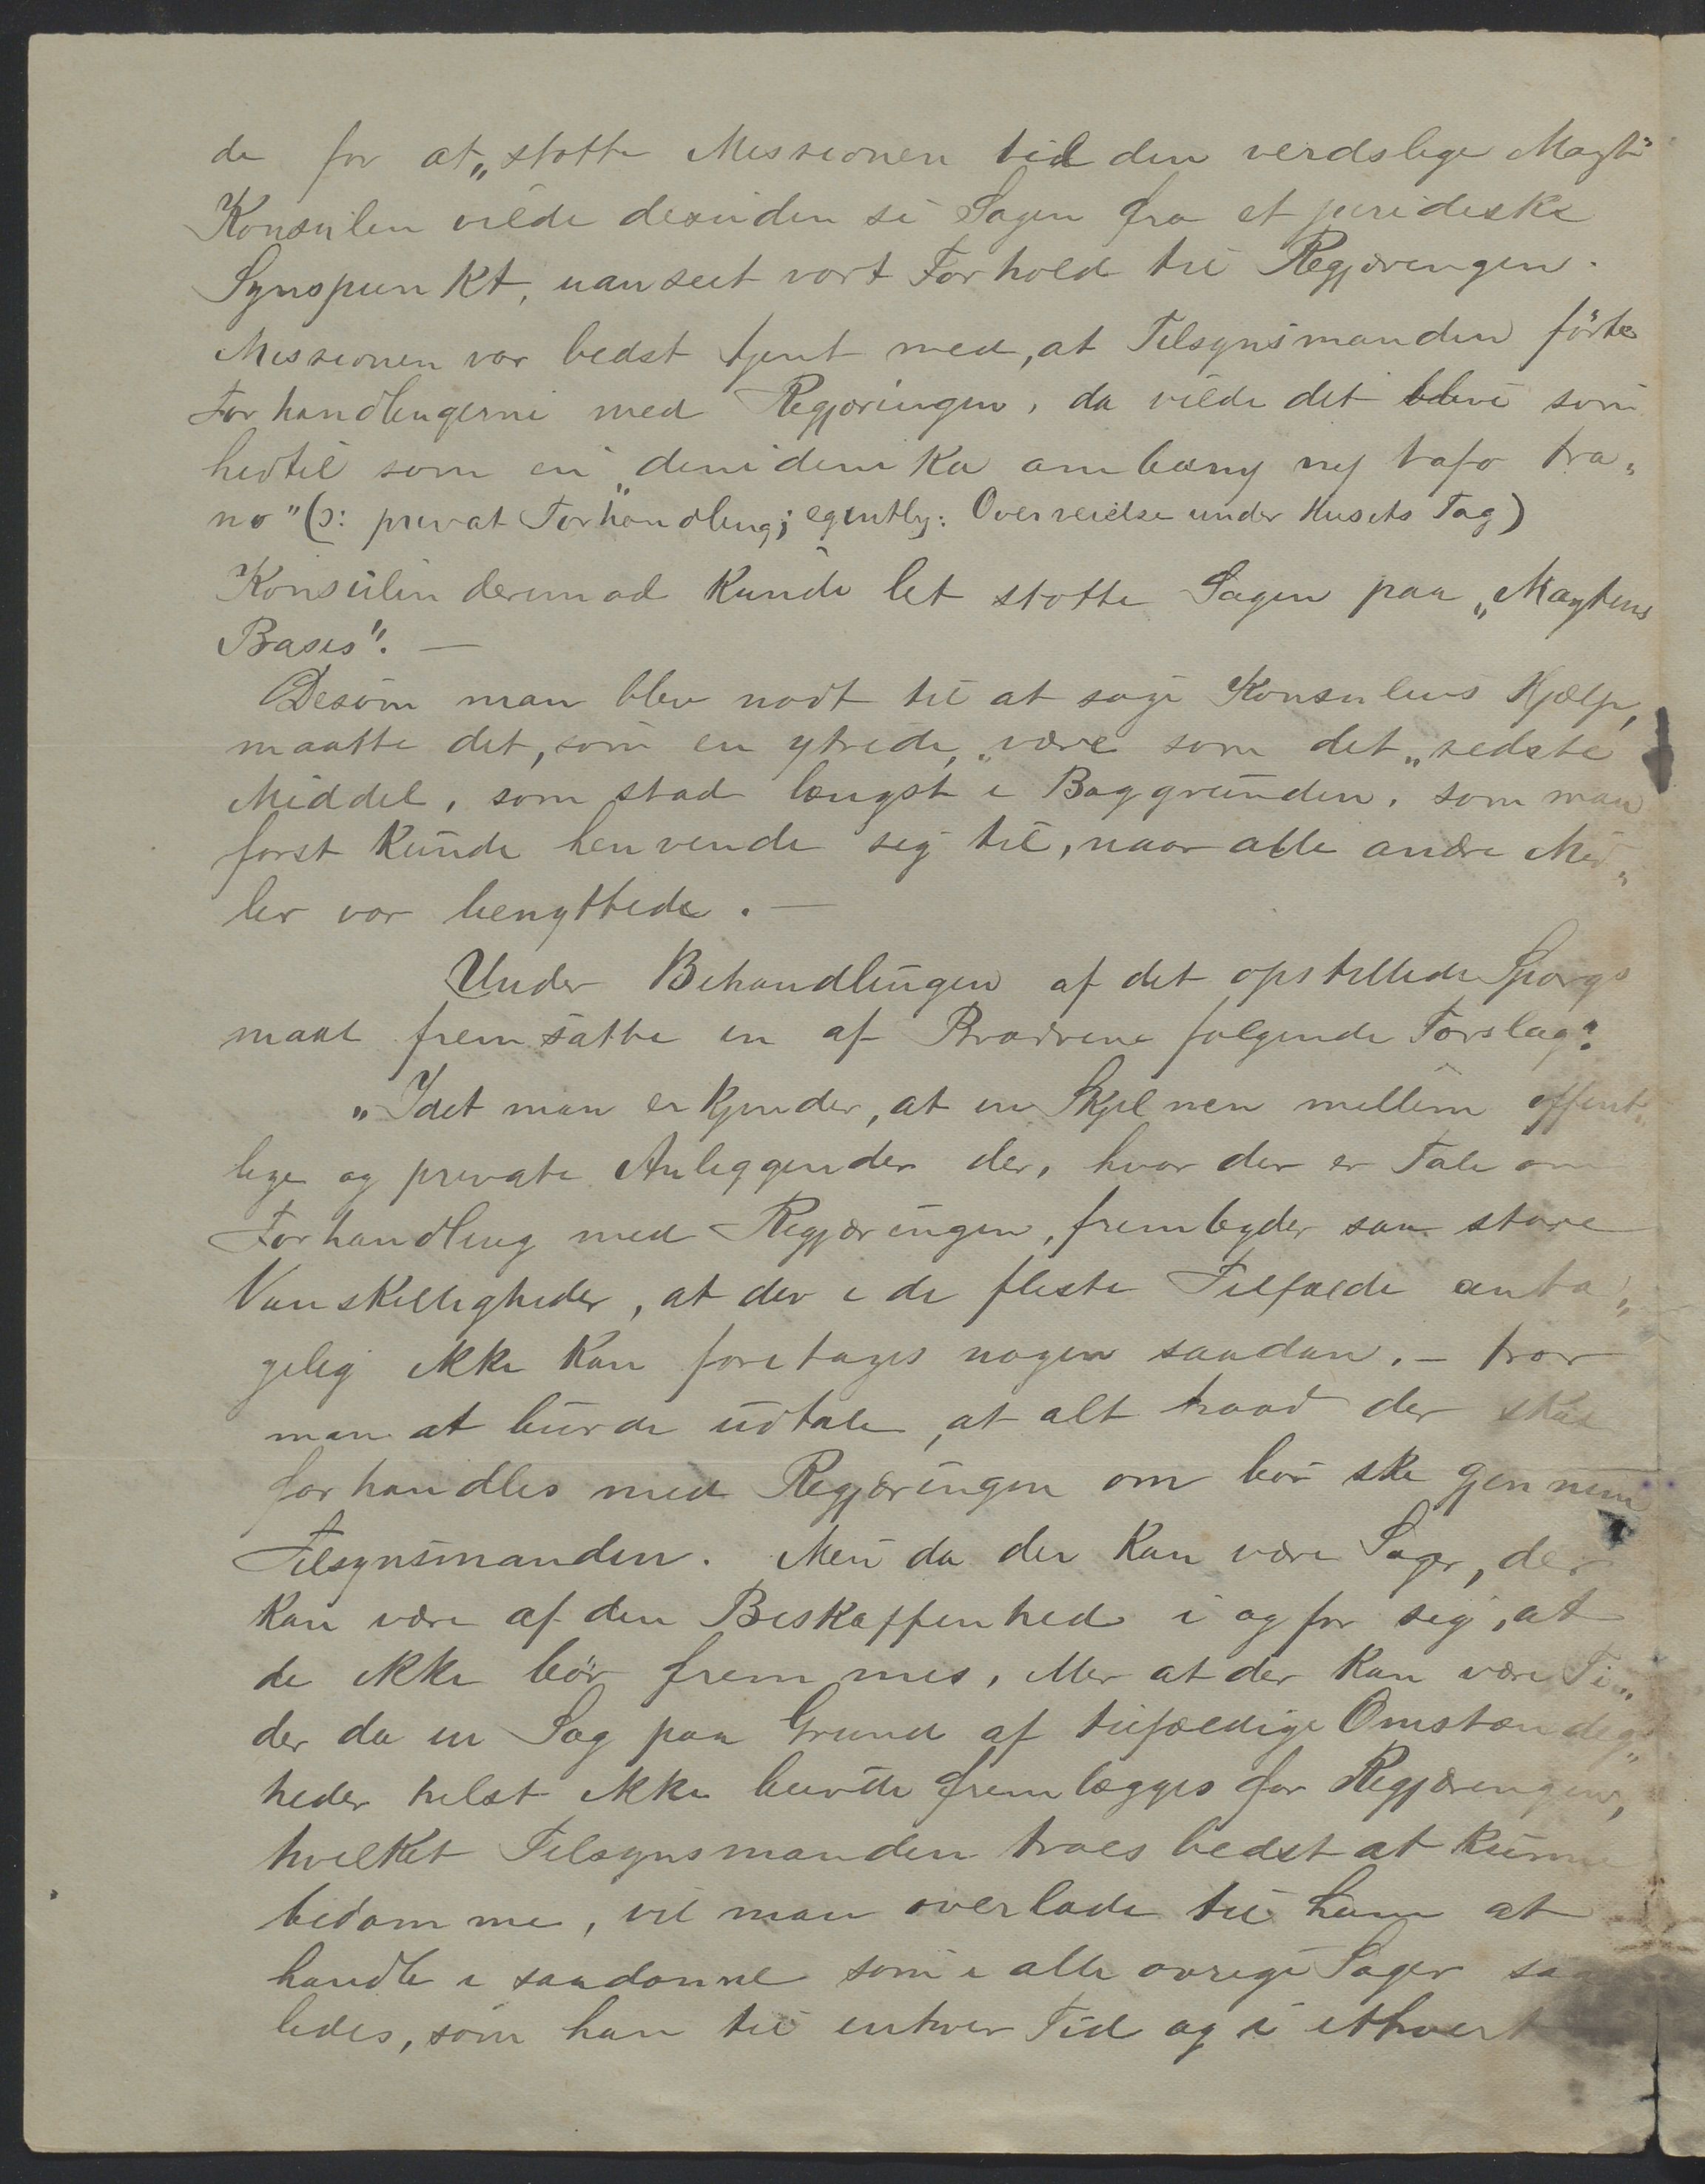 de for at „støtte Missionen til den verdslige Magt"
Konsulen vilde desuden se Sagen fra et juridiske
Synspunkt, uanseet vort Forhold til Regjæringen.
Missionen var bedst tjent med, at Tilsynsmanden førte
Forhandlingerne med Regjæringen, da vilde det blive som
hidtil som en „dinidinika ambany ny tafo tra„
no" (ɔ: privat Forhandling; egentlig: Overveielse under Husets Tag)
Konsulen derimod kunde let støtte Sagen paa „Magtens
Basis". —
Desom man blev nødt til at søge Konsulens Hjælp,
maatte det, som en ytrede, „være som det „sidste
Middel, som stod længst i Baggrunden, som man
først kunde henvende sig til, naar alle andre Mid„
ler var benyttede. —
Under Behandlingen af det opstillede Spørgs
maal fremsatte en af Brødrene følgende Forslag:
„Idet man erkjender, at en Skjelnen mellem offent„
lige og private Anliggender der, hvor der er Tale om
Forhandling med Regjæringen, frembyder saa store
Vanskelligheder, at der i de fleste Tilfælde anta„
gelig ikke kan foretages nogen saadan. — tror
man at burde udtale, at alt hvad der skal
forhandles med Regjæringen om bør ske gjennem
Tilsynsmanden. Men da der kan være Sager, der
kan være af den Beskaffenhed i og for sig, at
de ikke bør fremmes, eller at der kan være Ti„
der da en Sag paa Grund af tilfældige Omstændig„
heder helst ikke burde fremlægges for Regjæringen,
hvilket Tilsynsmanden troes bedst at kunne
bedømme, vil man overlade til ham at
handle i saadanne som i alle øvrige Sager saa
ledes, som han til enhver Tid og i ethvert